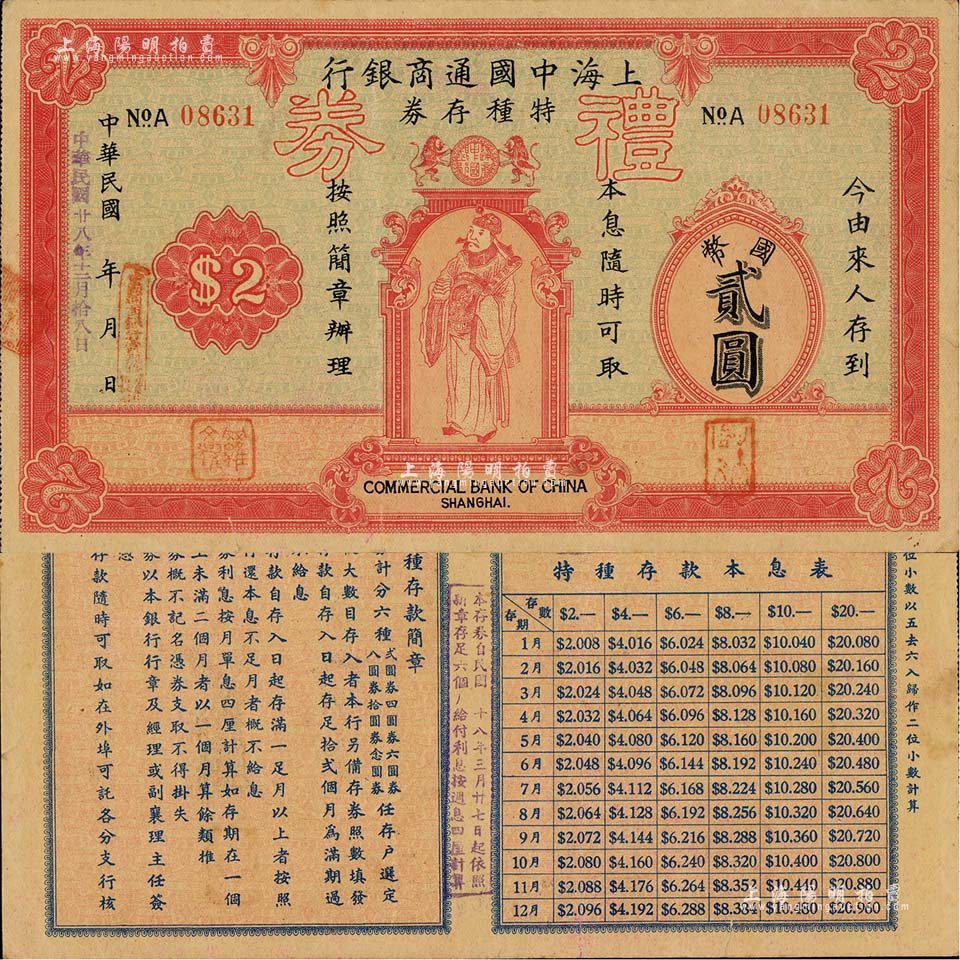 上海陽明拍賣
www.yangmingauction.com
上海陽明拍賣
www.yangmingauction.com
上海中國通商銀行
特種存券
禮券
NO.A 08631
NO.A 08631
今由來人存到
國幣
貳圓
本息隨時可取
按照簡章辦理
$2
中華民國 年 月 日
中華民國廿八年十二月拾八日
上海陽明拍賣
COMMERCIAL BANK OF CHINA
SHANGHAI.
位小數以五去六入歸作二位小數計算
特種存款本息表
存數 存期 $2.— $4.— $6.— $8.— $10.— $20.—
1月 $2.008 $4.016 $6.024 $8.032 $10.040 $20.080
2月 $2.016 $4.032 $6.048 $8.064 $10.080 $20.160
3月 $2.024 $4.048 $6.072 $8.096 $10.120 $20.240
4月 $2.032 $4.064 $6.096 $8.128 $10.160 $20.320
5月 $2.040 $4.080 $6.120 $8.160 $10.200 $20.400
6月 $2.048 $4.096 $6.144 $8.192 $10.240 $20.480
7月 $2.056 $4.112 $6.168 $8.224 $10.280 $20.560
8月 $2.064 $4.128 $6.192 $8.256 $10.320 $20.640
9月 $2.072 $4.144 $6.216 $8.288 $10.360 $20.720
10月 $2.080 $4.160 $6.240 $8.320 $10.400 $20.800
11月 $2.088 $4.176 $6.264 $8.352 $10.440 $20.880
12月 $2.096 $4.192 $6.288 $8.384 $10.480 $20.960
上海陽明拍賣
本存券自民國 十八年三月廿七日起依照
新章存足六個月給付利息按週息四厘計算
種存款簡章
計分六種 貳圓券四圓券六圓券八圓券拾圓券念圓券 任存戶選定
大數目存入者本行另備存券照數填發
存款自存入日起存足拾弍個月為滿期過
給息
存款自存入日起存滿一足月以上者按照
行還本息不足月者概不給息
券利息按月單息四厘計算如存期在一個
上未滿二個月者以一個月算餘類推
券概不記名憑券支取不得掛失
券以本銀行行章及經理或副襄理主任簽
存款隨時可取如在外埠可託各分支行核